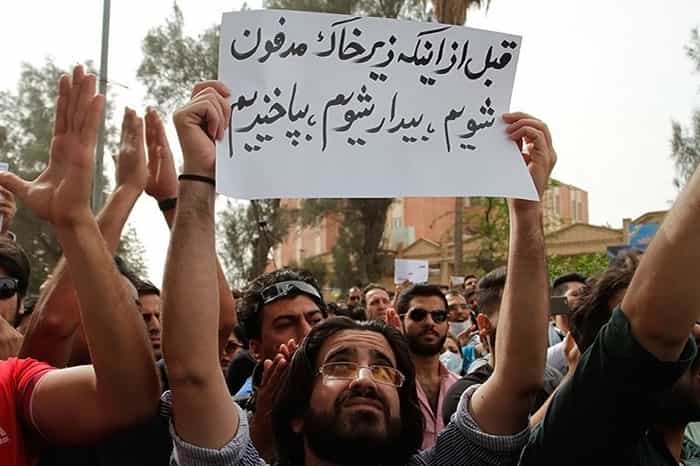 قبل از اینکه زیر خاک مدفون
شویم ، بیدار شویم ، بپاخیزیم